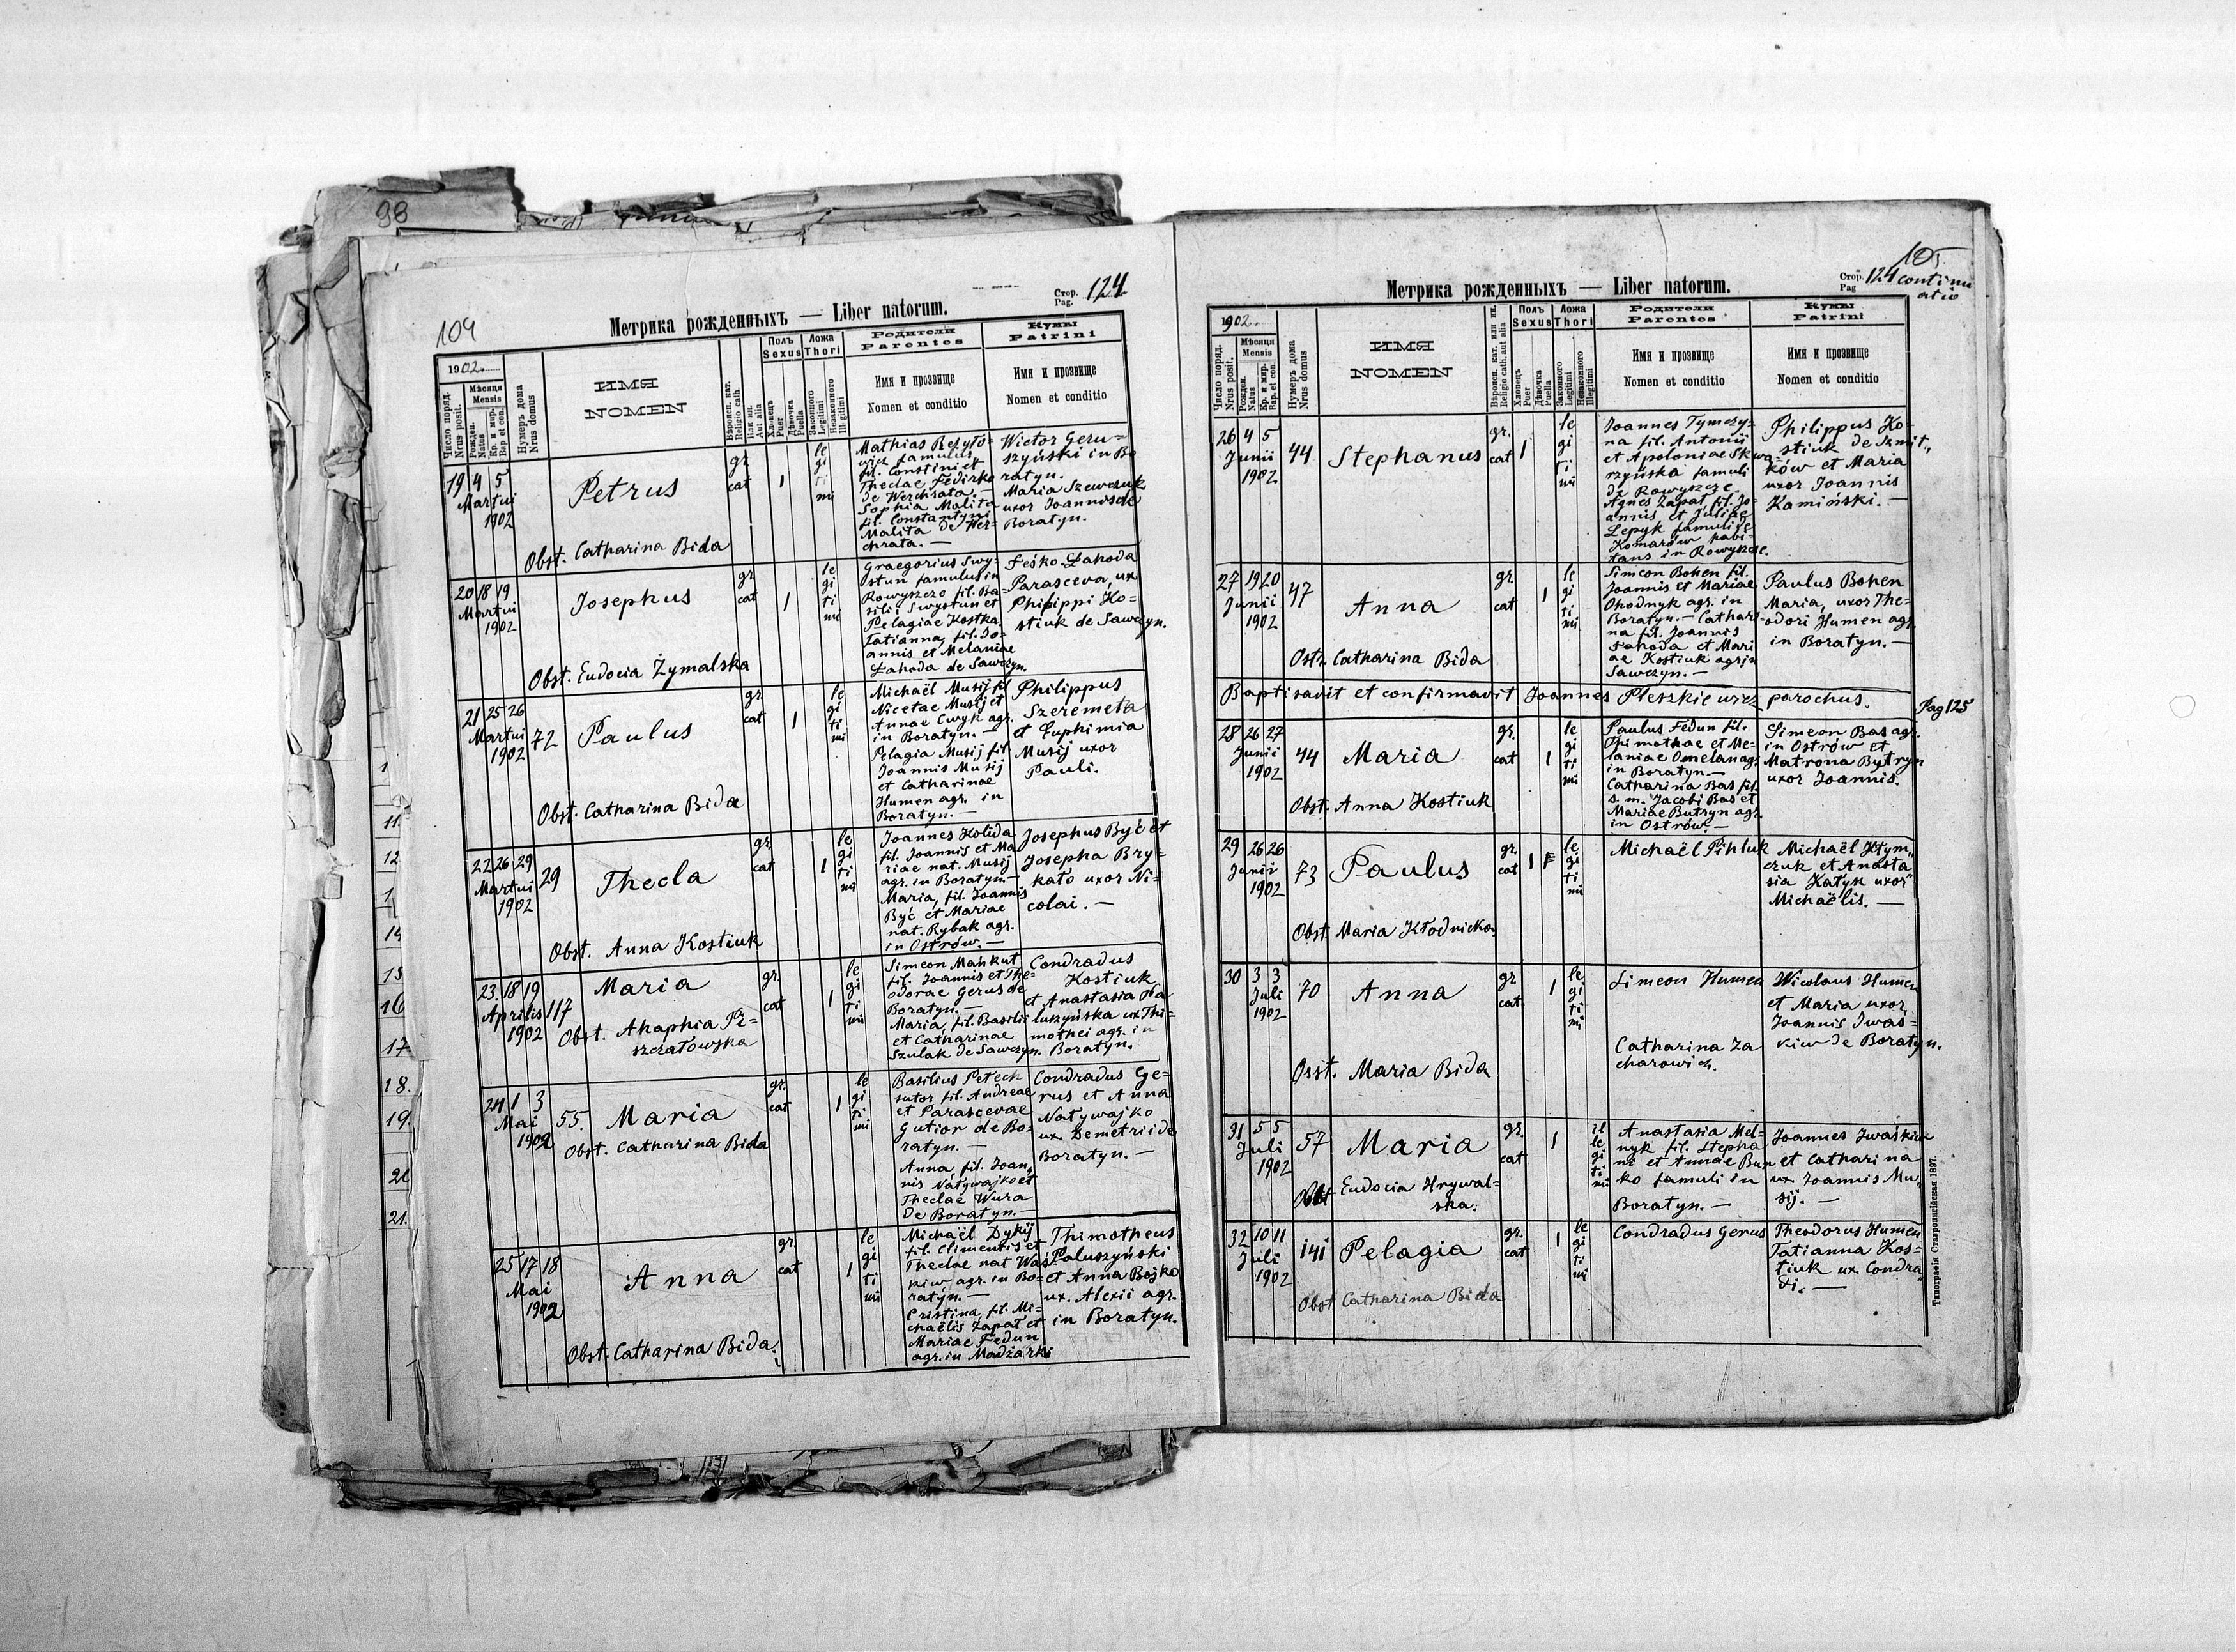 98
104
Метрика рожденныхъ — Liber natorum.
Стор.
Pag. 124
1902.
Число поряд.
Nrus posit.
Мѣсяця
Mensis
Рожден.
Natus
Кр. и мир.
Bap et con.
Нумеръ дома
Nrus domus
ИМЯ
NOMEN
Вѣроисп. кат.
Religio cath.
или ин.
Aut alia
Полъ
Sexus
Хлопецъ
Puer
Дѣвочка
Puella
Ложа
Thori
Законного
Legitimi
Незаконного
Illegitimi
Родители
Parentes
Имя и прозвище
Nomen et conditio
Кумы
Patrini
Имя и прозвище
Nomen et conditio
19 4 5
Martii
1902
Petrus
Obst. Catharina Bida
gr.
cat
1
le
gi
ti
mi
famulus
fil. Constini et
Theclae Fedirko
de Werchrata.
Sophia Malita
fil. Constantyni
Malita de Wer-
chrata. —
Wictor Geru=
szyński in Bo
ratyn.
Maria Szewczuk
uxor Joannis de
Boratyn.
20 18 19
Martii
1902
Josephus
Obst. Eudocia Żymalska
gr.
cat
1
le
gi
ti
mi
Graegorius Swy-
stun famulus in
Rowyszcze fil. Ba-
silii Swystun et
Pelagiae Kostka
Tatianna, fil. Jo-
annis et Melaniae
Łahoda de Sawczyn.
Feśko Łahoda
Parasceva, ux
Philippi Ko=
stiuk de Sawczyn.
21 25 26
Martii
1902
72
Paulus
Obst. Catharina Bida
gr.
cat
1
le
gi
ti
mi
Michaël Musij fil
Nicetae Musij et
Annae Cwyk agr.
in Boratyn. —
Pelagia Musij fil
Joannis Musij
et Catharinae
Humen agr. in
Boratyn. —
Philippus
Szeremeta
et Euphimia
Musij uxor
Pauli.
22 26 29
Martii
1902
29
Thecla
Obst. Anna Kostiuk
gr.
cat
1
le
gi
ti
mi
Joannes Kolida
fil. Joannis et Ma
riae nat. Musij
agr. in Boratyn. —
Maria, fil. Joannis
Być et Mariae
nat. Rybak agr.
in Ostrów. —
Josephus Być et
Josepha Bry=
kato uxor Ni=
colai. —
23. 18 19
Aprilis
1902
117
Maria
Obst. Ahaphia Pe=
szczatowska
gr.
cat
1
le
gi
ti
mi
Simeon Mańkut
fil. Joannis et The=
odorae Gerus de
Boratyn. —
Maria, fil. Basilii
et Catharinae
Szulak de Sawczyn.
Condradus
Kostiuk
et Anastasia Pa
luszyńska ux Thi=
mothei agr. in
Boratyn.
24 1 3
Mai
1902
55.
Maria
Obst. Catharina Bida
gr.
cat
1
le
gi
ti
mi
Basilius Petech
sutor fil. Andreae
et Parascevae
Gutior de Bo-
ratyn. —
Anna, fil. Joan„
nis Natywajko et
Theclae Wura
de Boratyn. —
Condradus Ge=
rus et Anna
Natywajko
ux. Demetrii de
Boratyn. —
25 17 18
Mai
1902
Anna
Obst. Catharina Bida.
gr.
cat
1
le
gi
ti
mi
Michaël Dykij
fil. Clementis et
Theclae nat Waś
kiw agr. in Bo=
ratyn. —
Cristina, fil. Mi=
chaëlis Zapat et
Mariae Fedun
agr. in Madżarki
Thimotheus
Paluszyński
et Anna Bojko
ux. Alexii agr.
in Boratyn.
11.
12
14
15
16
17.
18.
19.
21.
105.
Метрика рожденныхъ — Liber natorum.
Стор.
Pag 124 continu
atio
1902.
Число поряд.
Nrus posit.
Мѣсяця
Mensis
Рожден.
Natus
Кр. и мир.
Bap. et con.
Нумеръ дома
Nrus domus
ИМЯ
NOMEN
Вѣроисп. кат. или ин.
Religio cath. aut alia
Полъ
Sexus
Хлопецъ
Puer
Дѣвочка
Puella
Ложа
Thori
Законного
Legitimi
Незаконного
Illegitimi
Родители
Parentes
Имя и прозвище
Nomen et conditio
Кумы
Patrini
Имя и прозвище
Nomen et conditio
26 4 5
Junii
1902
44
Stephanus
gr.
cat
1
le
gi
ti
mi
Joannes Tymczy-
na fil. Antonii
et Apoloniae Skwa
rzyńska famuli
de Rowyszcze.
Agnes Zapat, fil. Jo-
annis et Juliae
Lepyk famuli de
Komarów habi-
tans in Rowyszcze.
Philippus Ko-
stiuk de Szmit„
ków et Maria
uxor Joannis
Kamiński. —
27 19 20
Junii
1902
47
Anna
Ostr. Catharina Bida
gr.
cat
1
le
gi
ti
mi
Simeon Bohen fil.
Joannis et Mariae
Ohodnyk agr. in
Boratyn. — Cathari
na fil. Joannis
Łahoda et Mari
ae Kostiuk agr in
Sawczyn. —
Paulus Bohen
Maria, uxor The=
odori Humen agr.
in Boratyn. —
Baptisavit et confirmavit Joannes Pleszkiewicz parochus.
Pag 125
28 26 27
Junii
1902
44
Maria
Obst. Anna Kostiuk
gr.
cat
1
le
gi
ti
mi
Paulus Fedun fil.
Thimotheae et Me-
laniae Omelan agr.
in Boratyn. —
Catharina Bas fil.
s. m. Jacobi Bas et
Mariae Butryn agr.
in Ostrów. —
Simeon Bas agr.
in Ostrów et
Matrona Bytryn
uxor Joannis.
29 26 26
Junii
1902
73
Paulus
Obst. Maria Kłodnicka.
gr.
cat
1
le
gi
ti
mi
Michaël Pihluk
Michaël Kłym„
czuk et Anasta
sia Katyk uxor
Michaëlis. —
30 3 3
Juli
1902
70
Anna
Osst. Maria Bida
gr
cat.
1
le
gi
ti
mi
Simeon Humen
Catharina Za
charowich.
Nicolaus Humen
et Maria uxor
Joannis Iwas=
kiw de Boratyn.
31 5 5
Juli
1902
57
Maria
Obst Eudocia Hrywal=
ska.
gr.
cat
1
il
le
gi
ti
mi
Anastasia Mel=
nyk fil. Stepha
ni et Annae Bun
ko famuli in
Boratyn. —
Joannes Iwaśkiw
et Catharina
ux. Joannis Mu„
sij. —
32 10 11
Juli
1902
141
Pelagia
Obst Catharina Bida
gr.
cat
1
le
gi
ti
mi
Condradus Gerus
Theodorus Humen
Tatianna Kos=
tiuk ux. Condra„
di. —
Типографія Ставропигійская 1897.